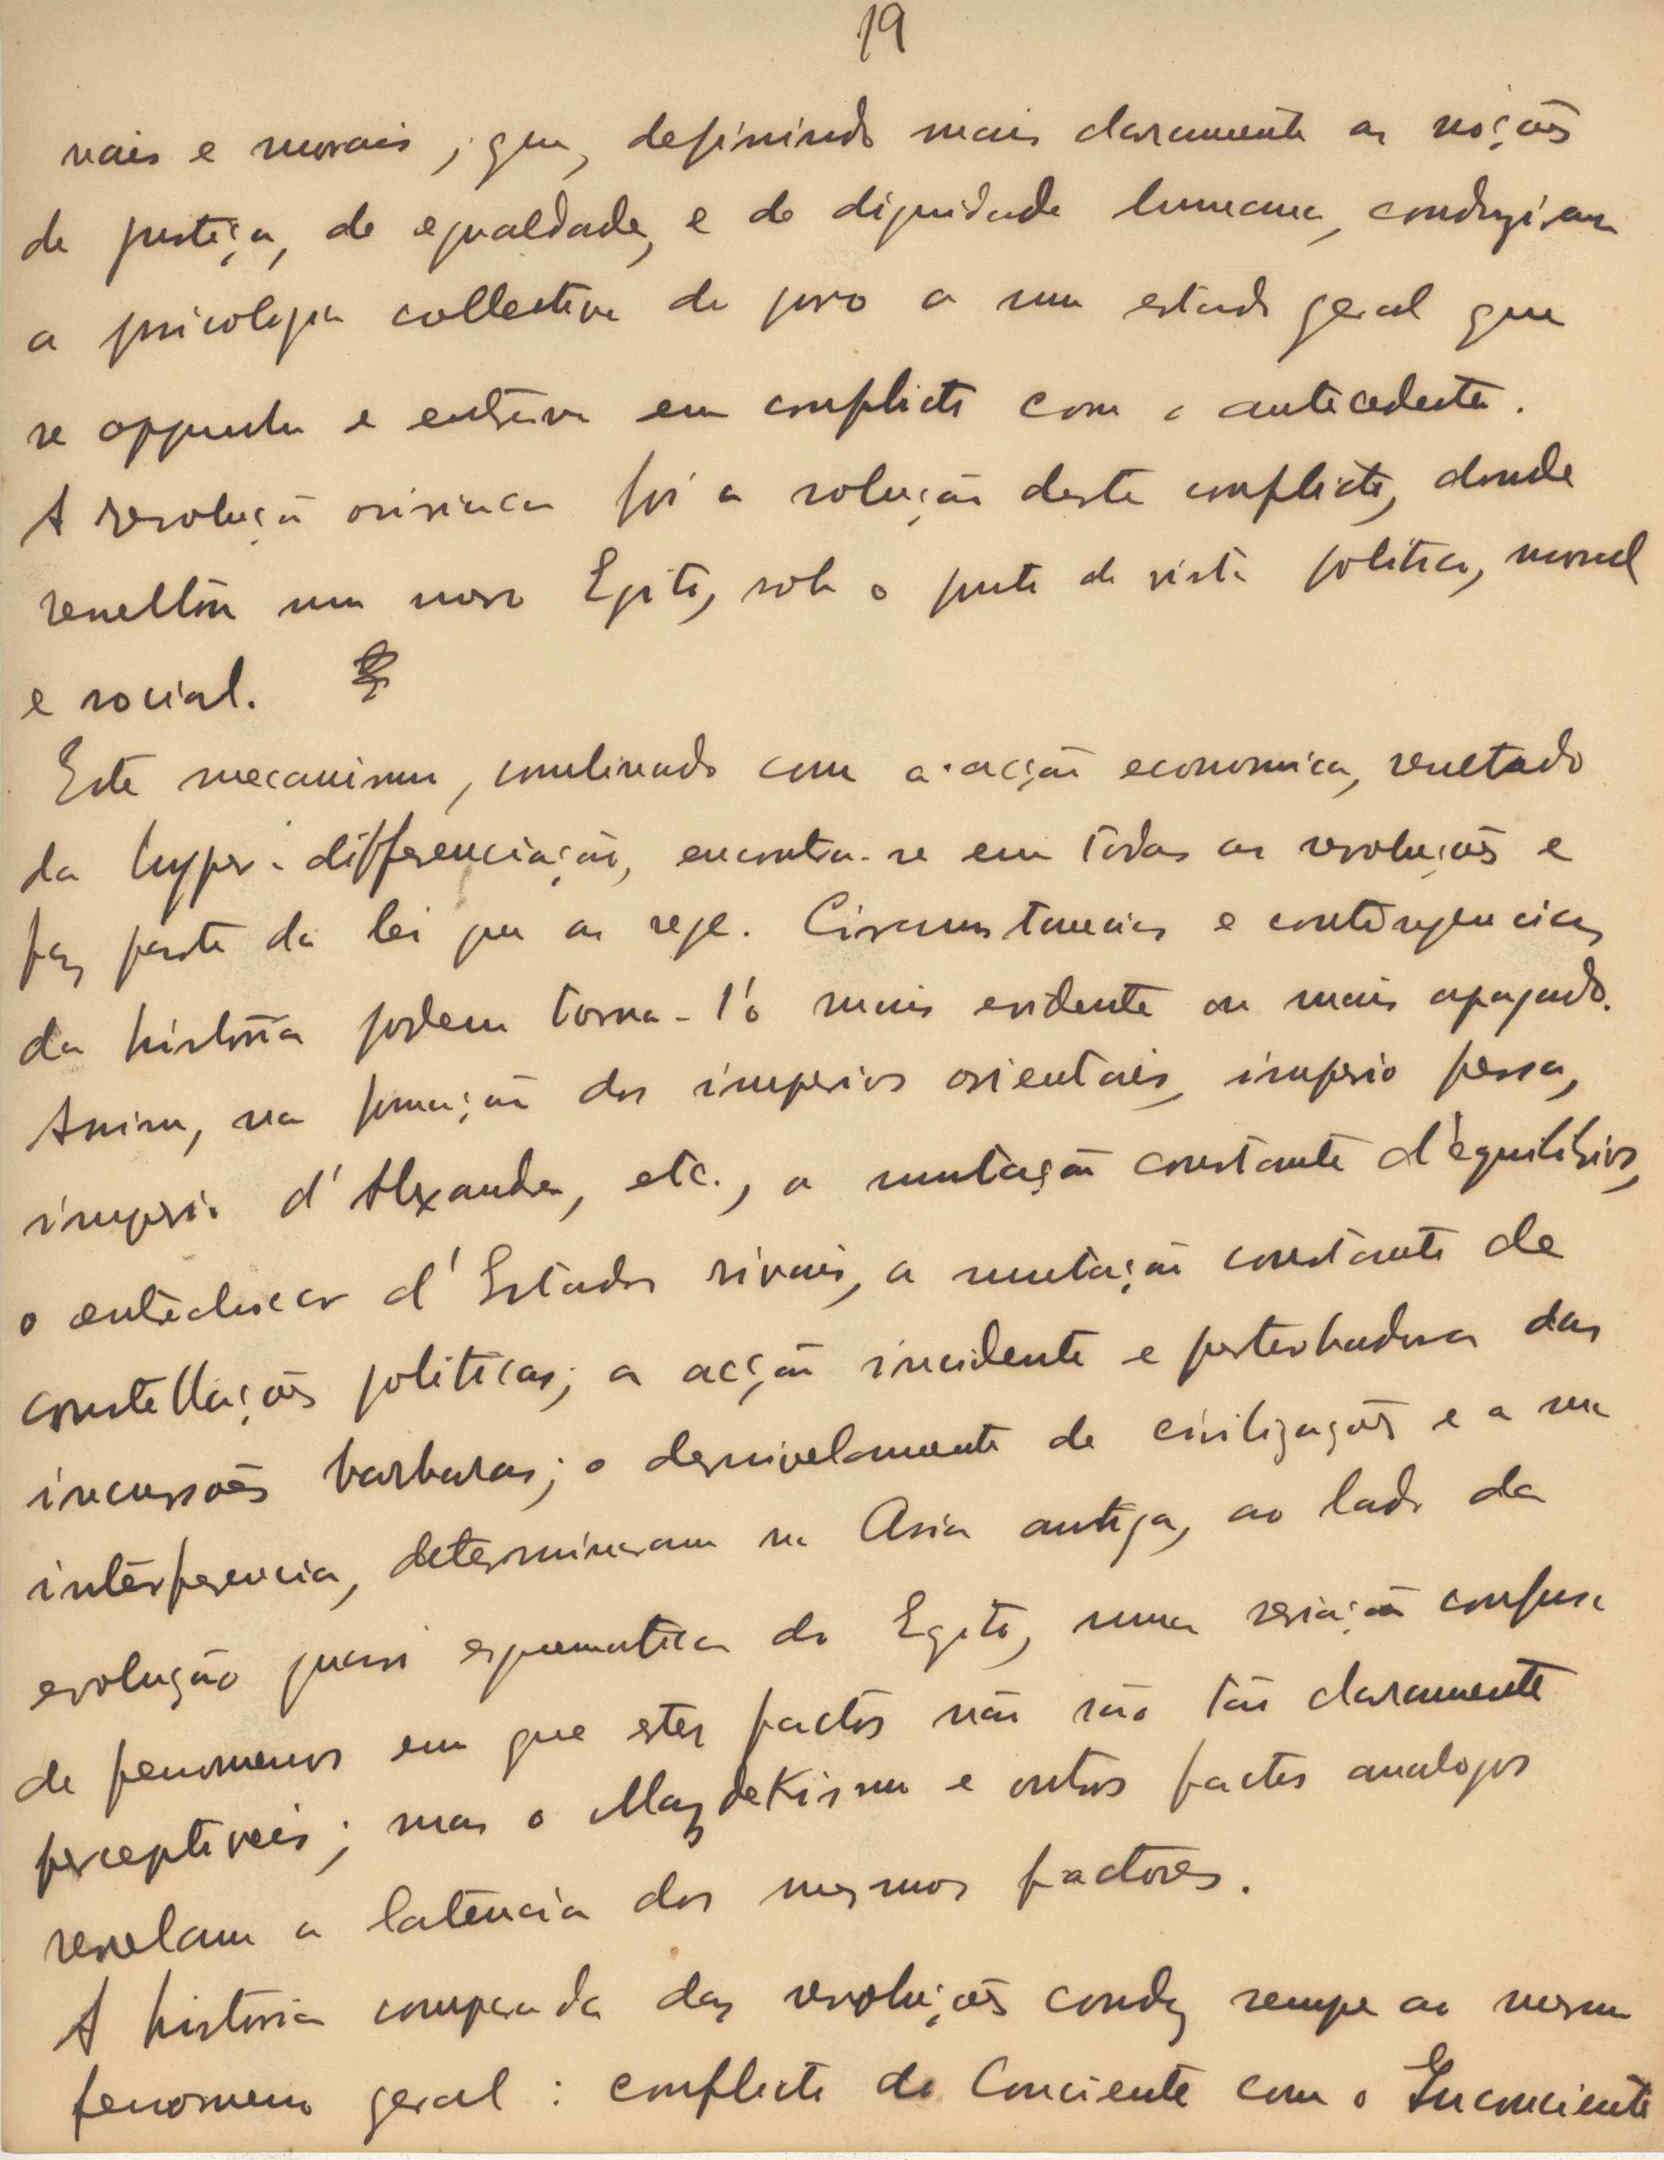 19
nais e morais, que, definindo mais claramente as noções
de justiça, de egualdade, e de dignidade humana, conduziam
a psicologia collectiva do povo a um estado geral que
se oppunha e entrava em conflicto com o antecedente.
A revolução osiriaca foi a solução deste conflicto, donde
resultou um novo Egito, sob o ponto de vista politico, moral
e social.
Este mecanismo, combinado com a acção economica, resultado
da hyper-differenciação, encontra-se em todas as revoluções e
faz parte da lei que as rege. Circumstancias e contingencias
da história podem torna-l'o mais evidente ou mais apagado.
Assim, na formação dos imperios orientais, imperio persa,
imperio d'Alexandre, etc., a mutação constante d'equilibrios,
o entrechocar d'Estados rivais, a mutação constante de
constellações politicas; a acção incidente e perturbadora das
incursões barbaras; o desnivelamento de civilizações e a sua
interferencia, determinaram na Asia antiga, ao lado da
evolução quasi esquematica do Egito, uma seriação confusa
de fenomenos em que estes factos não são tão claramente
perceptiveis; mas o Mazdekismo e outros factos analogos
revelam a latencia dos mesmos factores.
A história comparada das revoluções conduz sempre ao mesmo
fenomeno geral: conflicto do Conciente com o Inconciente